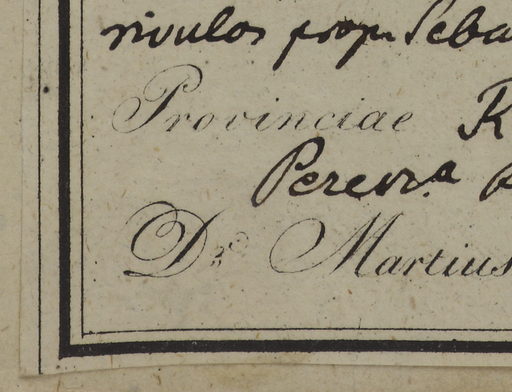 rivulos prop. Seba
Provinciae R
Pereira
Dr. Martius